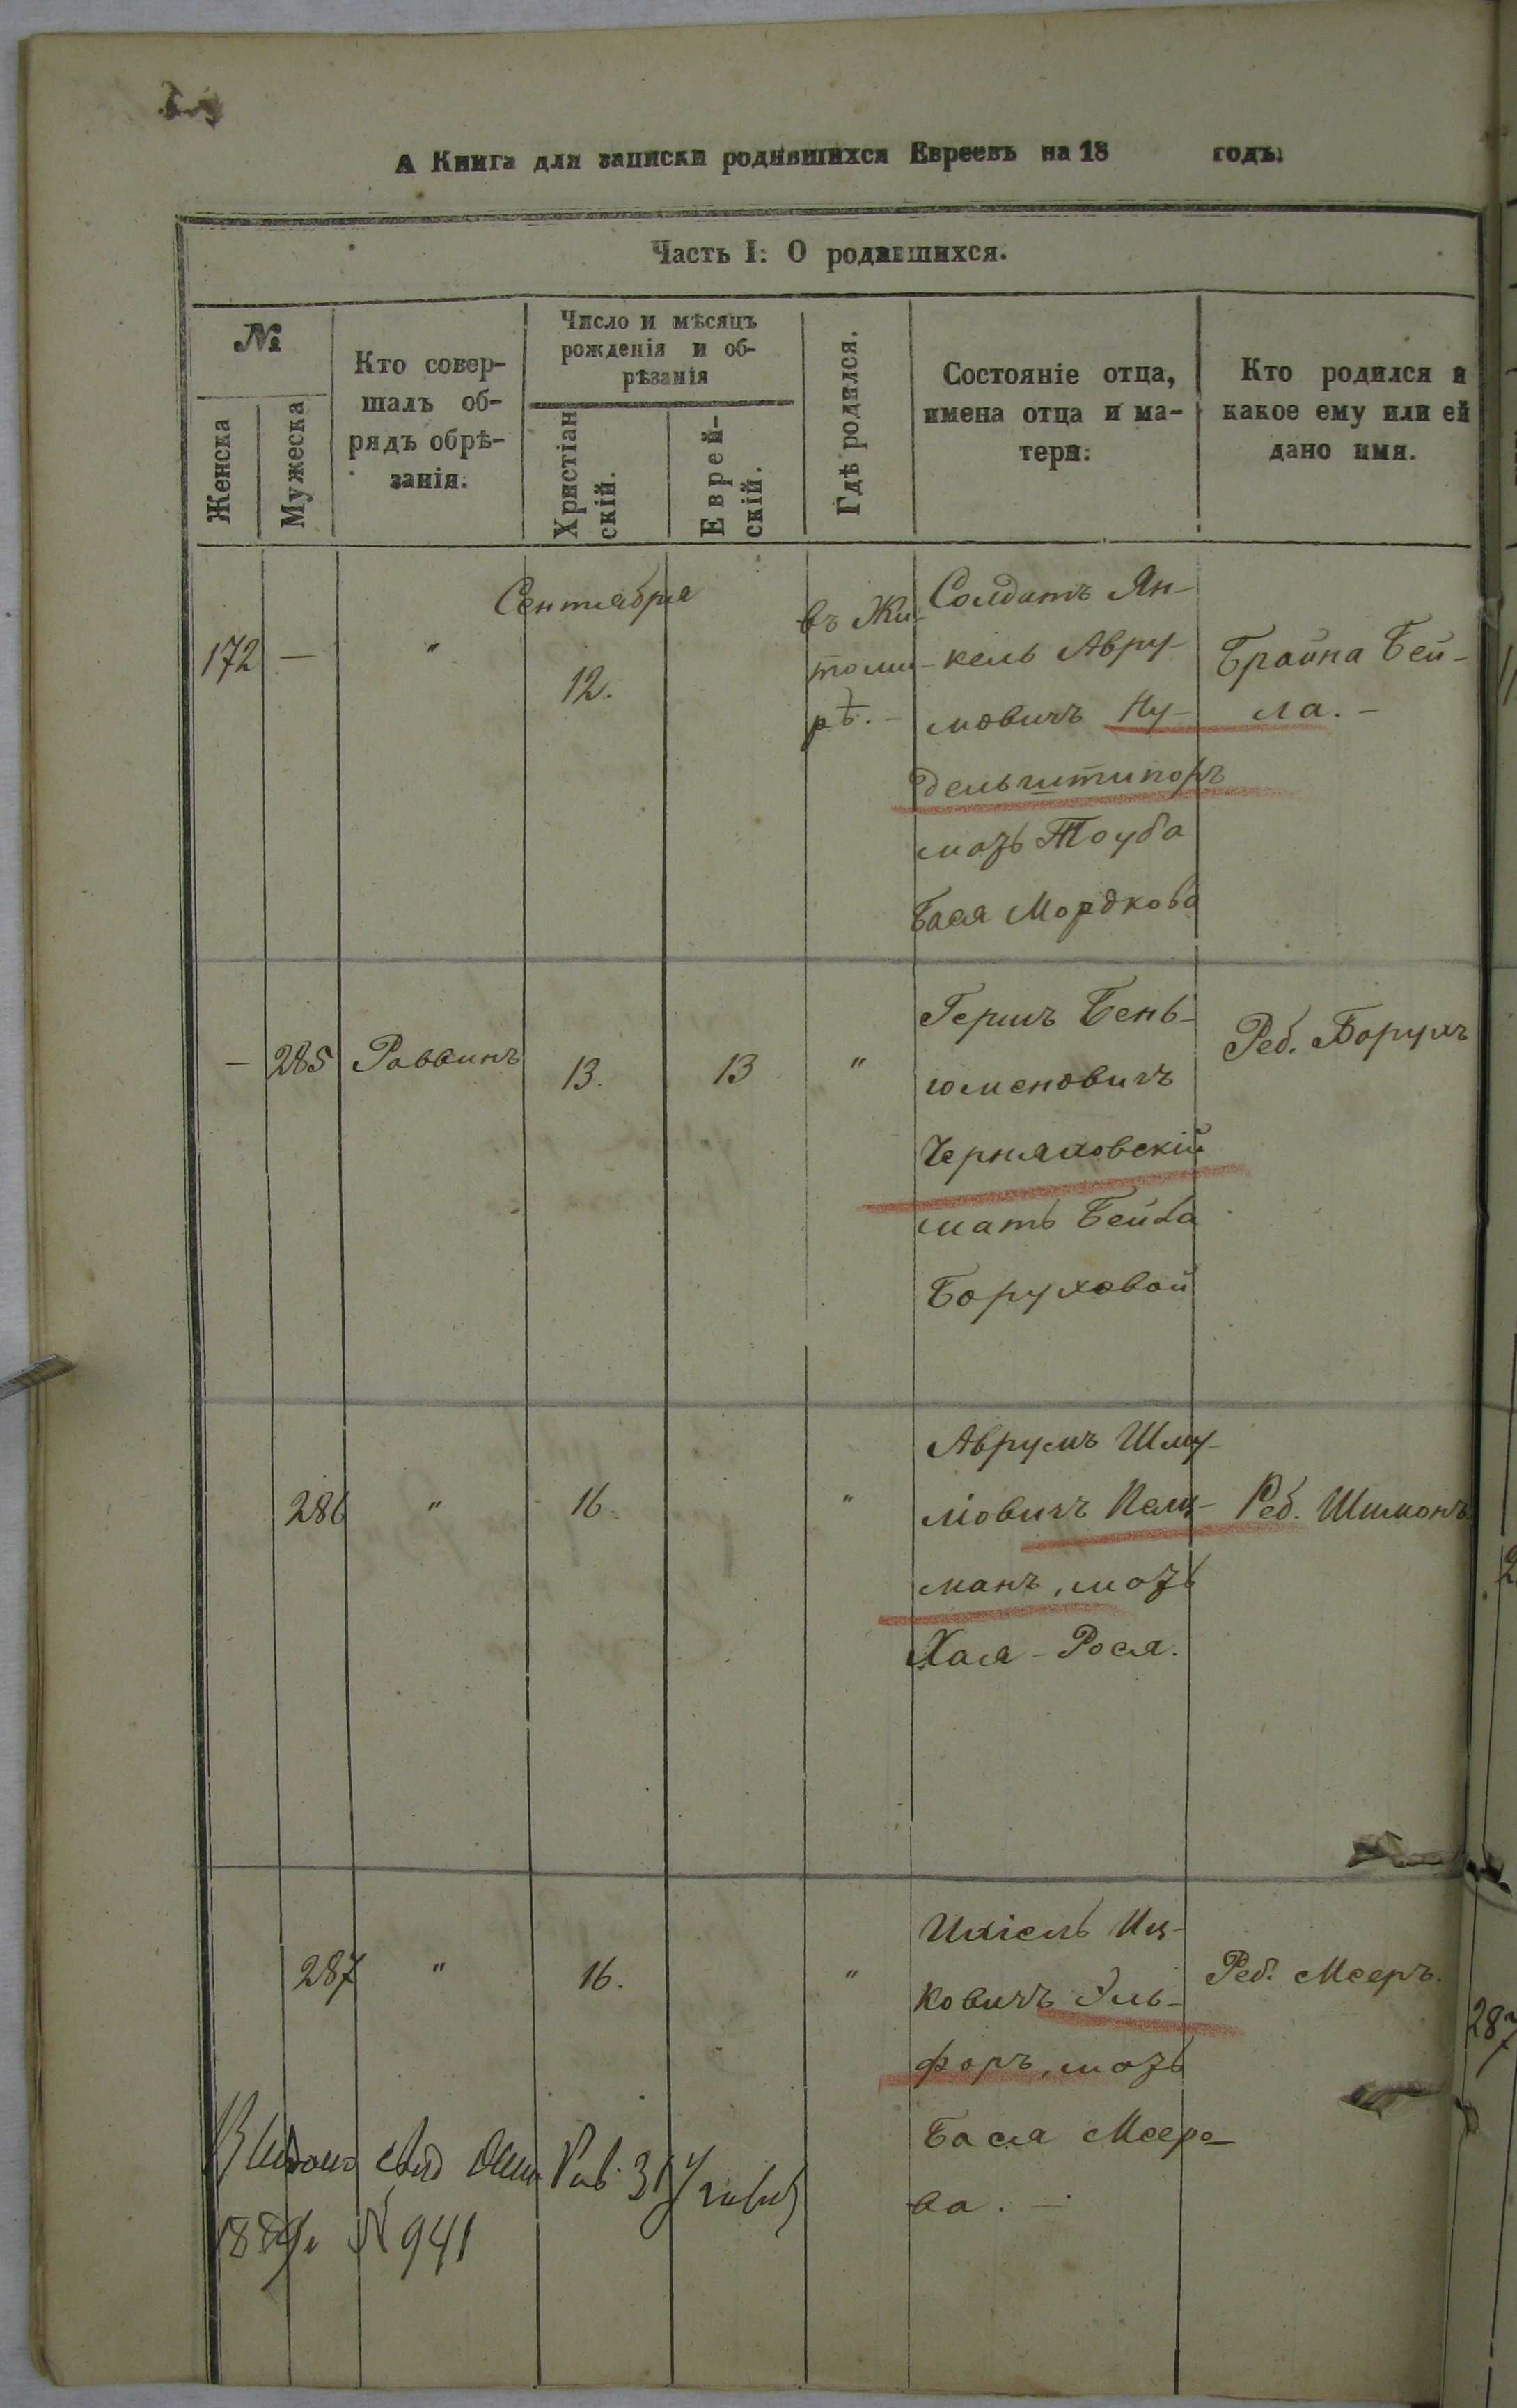 А Книга для записки родившихся Евреевъ на 18 годъ.
Часть I: О родившихся.
№
Женска
Мужеска
Кто совер-
шалъ об-
рядъ обрѣ-
занія.
Число и мѣсяцъ
рожденія и об-
рѣзанія
Христіан
скій.
Еврей-
скій.
Гдѣ родился.
Состояніе отца,
имена отца и ма-
тери.
Кто родился и
какое ему или ей
дано имя.
172 — " Сентября
12.
въ Жи-
томи-
рѣ. –
Солдатъ Ян-
кель Авру-
мовичъ Ну-
дельштипоръ
мать Тоуба
Бася Мордкова
Брайна Бей-
ла. –
– 285 Раввинъ 13. 13 "
Гершъ Бень-
юменовичъ
Черняховскій
мать Бейла
Боруховой
Реб. Борухъ
286 " 16. "
Аврумъ Шму-
ліовичъ Кельц-
манъ, мать
Хая - Рося.
Реб. Шимонъ
287 " 16. "
Ихіель Иц-
ковичъ Эль-
форъ, мать
Бася Мееро-
ва. –
Реб. Мееръ.
Раб. 31
188 г. № 941
28